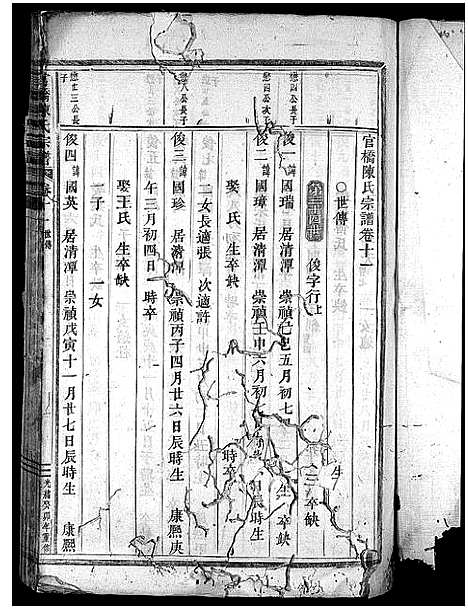 官橋陳氏宗譜卷十一
○世傳
俊字行上
懋四公長子
俊一 諱國瑞 居清潭 崇禎己巳五月初七 生 卒缺
懋四公次子
俊二 諱國璋 居清潭 崇禎壬申六月初七 日辰時生
時卒
娶 氏 生卒缺
二女長適張 次適許
懋八公長子
俊三 諱國珍 居清潭 崇禎丙子四月廿六日辰時生 康熙庚
午三月初四日 時卒
娶王氏 生卒缺
一子 一女
懋廿三公長子
俊四 諱國英 居清潭 崇禎戊寅十一月廿七日辰時生 康熙
世傳
光緒癸卯年重修